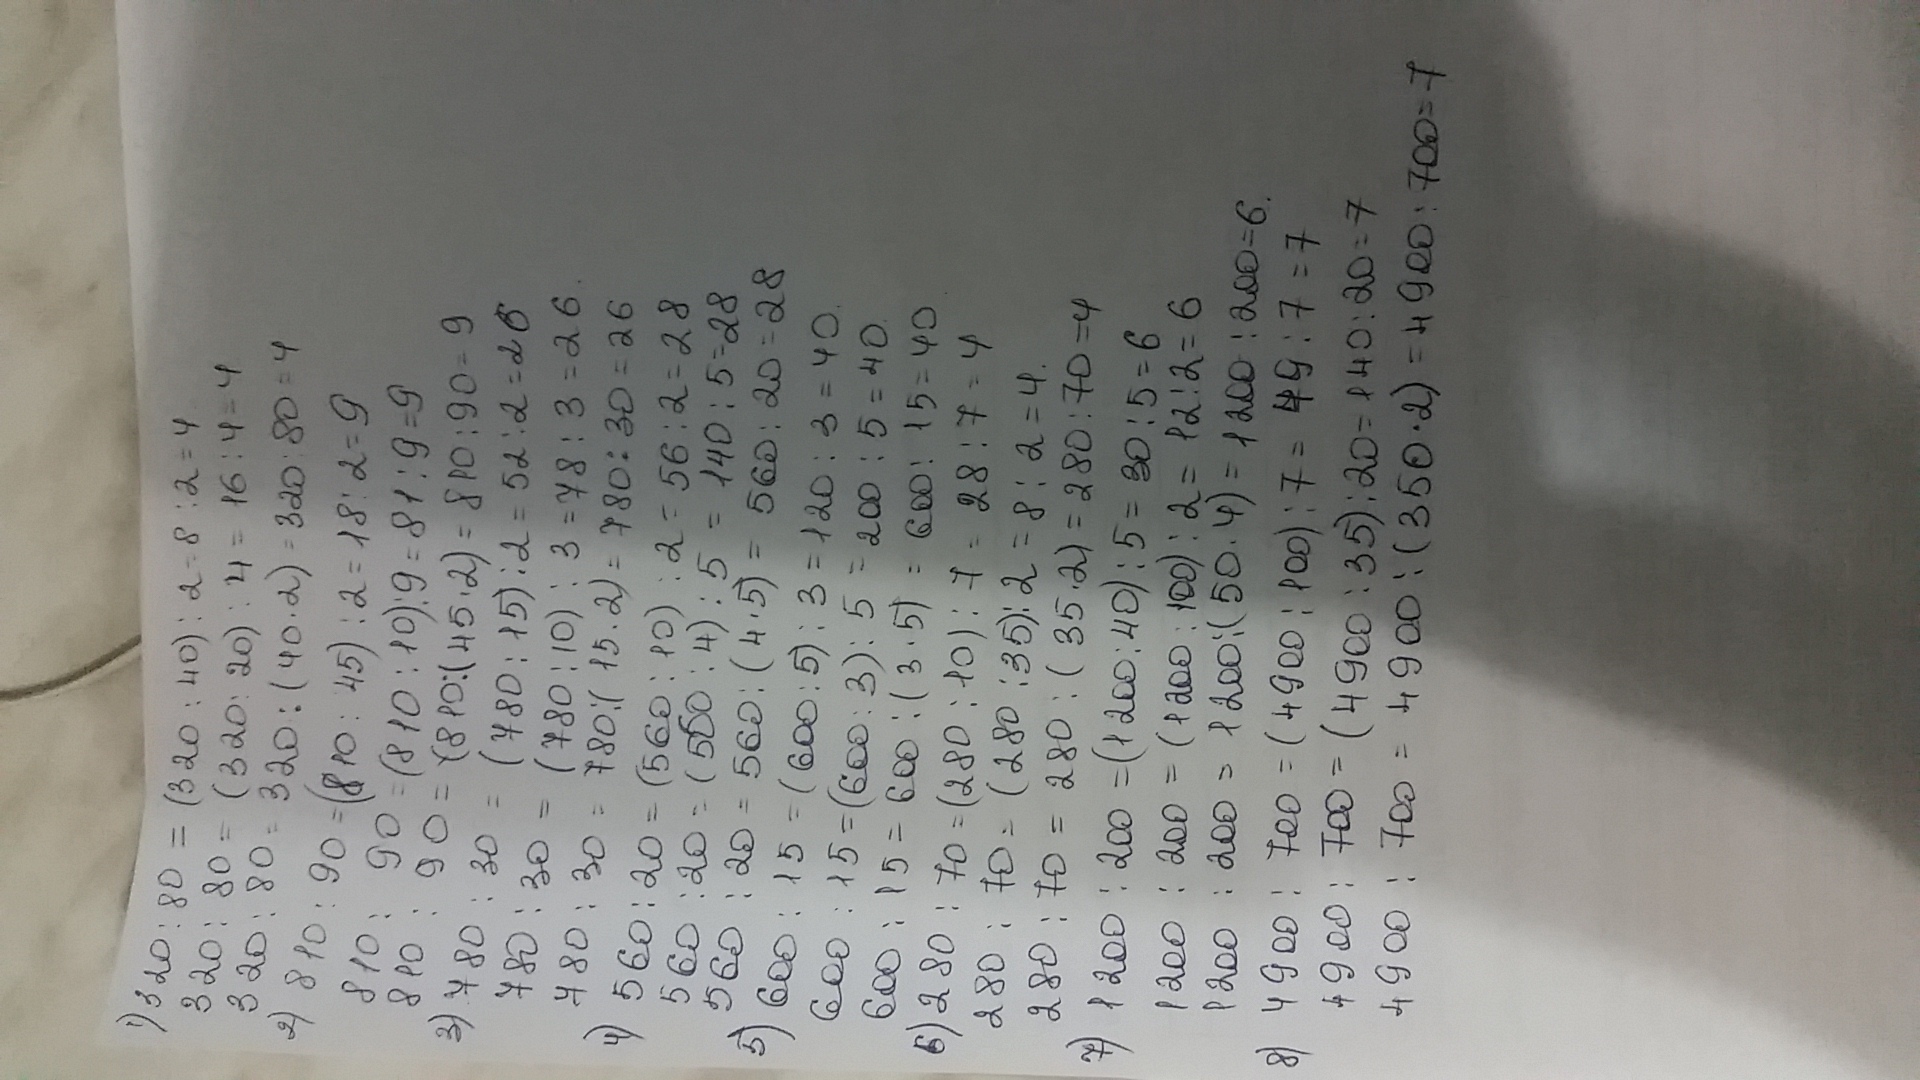 1) 320 : 80 = (320 : 40) : 2 = 8 : 2 = 4
320 : 80 = (320 : 20) : 4 = 16 : 4 = 4
320 : 80 = 320 : (40 · 2) = 320 : 80 = 4
2) 810 : 90 = (810 : 45) : 2 = 18 : 2 = 9
810 : 90 = (810 : 10) : 9 = 81 : 9 = 9
810 : 90 = (810 : (45 · 2) = 810 : 90 = 9
3) 780 : 30 = (780 : 15) : 2 = 52 : 2 = 26
780 : 30 = (780 : 10) : 3 = 78 : 3 = 26.
780 : 30 = 780 : (15 · 2) = 780 : 30 = 26
4) 560 : 20 = (560 : 10) : 2 = 56 : 2 = 28
560 : 20 = (560 : 4) : 5 = 140 : 5 = 28
560 : 20 = 560 : (4 · 5) = 560 : 20 = 28
5) 600 : 15 = (600 : 5) : 3 = 120 : 3 = 40.
600 : 15 = (600 : 3) : 5 = 200 : 5 = 40.
600 : 15 = 600 : (3 · 5) = 600 : 15 = 40.
6) 280 : 70 = (280 : 10) : 7 = 28 : 7 = 4
280 : 70 = (280 : 35) : 2 = 8 : 2 = 4.
280 : 70 = 280 : (35 · 2) = 280 : 70 = 4
7) 1200 : 200 = (1200 : 40) : 5 = 30 : 5 = 6
1200 : 200 = (1200 : 100) : 2 = 12 : 2 = 6
1200 : 200 = 1200 : (50 · 4) = 1200 : 200 = 6.
8) 4900 : 700 = (4900 : 100) : 7 = 49 : 7 = 7
4900 : 700 = (4900 : 35) : 20 = 140 : 20 = 7
4900 : 700 = 4900 : (350 · 2) = 4900 : 700 = 7